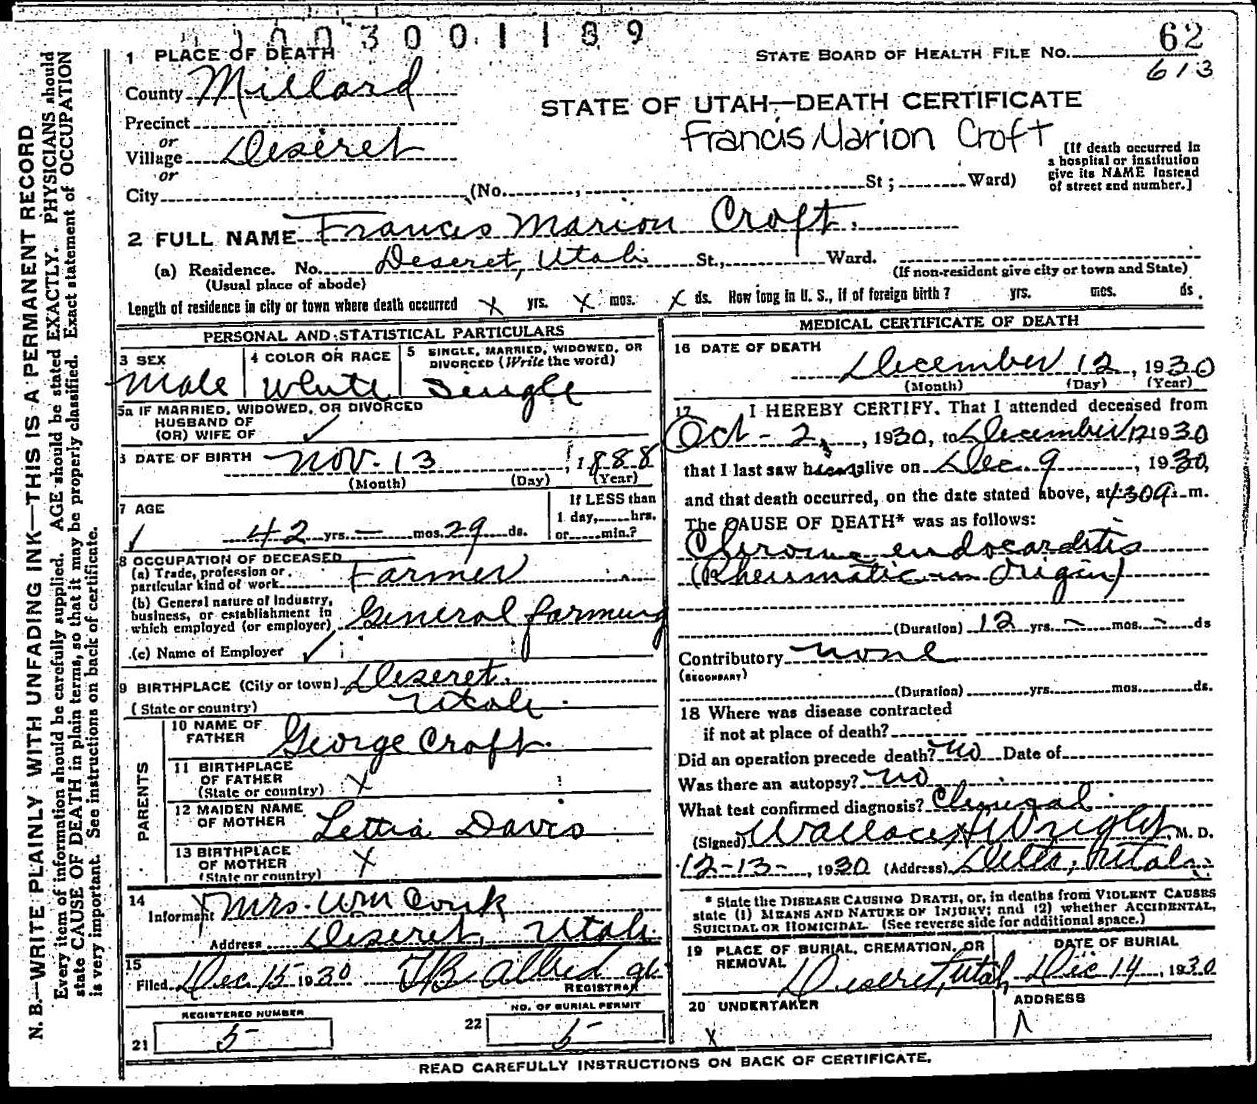 1003001189
1 PLACE OF DEATH
STATE BOARD OF HEALTH FILE NO. 62
613
County Millard
STATE OF UTAH—DEATH CERTIFICATE
Precinct
Francis Marion Croft
or
Village Deseret
[If death occurred in
a hospital or institution
give its NAME instead
of street and number.]
or
City (No. , St; Ward)
2 FULL NAME Frances Marion Croft.
(a) Residence. No. Deseret, Utah St., Ward.
(Usual place of abode)
(If non-resident give city or town and State)
Length of residence in city or town where death occurred x yrs. x mos. x ds. How long in U. S., if of foreign birth? yrs. mos. ds.
PERSONAL AND STATISTICAL PARTICULARS
3 SEX
Male
4 COLOR OR RACE
White
5 SINGLE, MARRIED, WIDOWED, OR
DIVORCED (Write the word)
Single
5a IF MARRIED, WIDOWED, OR DIVORCED
HUSBAND OF
(OR) WIFE OF
6 DATE OF BIRTH Nov. 13, 1888
(Month) (Day) (Year)
7 AGE
42 yrs. — mos. 29 ds.
If LESS than
1 day, hrs.
or min.?
8 OCCUPATION OF DECEASED
(a) Trade, profession or
particular kind of work Farmer
(b) General nature of industry,
business, or establishment in
which employed (or employer) General farming
(c) Name of Employer
9 BIRTHPLACE (City or town) Deseret.
(State or country) Utah.
PARENTS
10 NAME OF
FATHER George Croft.
11 BIRTHPLACE
OF FATHER
(State or country) X
12 MAIDEN NAME
OF MOTHER Lettia Davis
13 BIRTHPLACE
OF MOTHER
(State or country) X
14
Informant Mrs. Wm Cook
Address Deseret, Utah.
15
Filed Dec 15 1930 Allred
REGISTRAR
REGISTERED NUMBER
21 5
NO. OF BURIAL PERMIT
22 5
MEDICAL CERTIFICATE OF DEATH
16 DATE OF DEATH
December 12, 1930
(Month) (Day) (Year)
17 I HEREBY CERTIFY, That I attended deceased from
Oct - 2, 1930, to December 12 1930
that I last saw him alive on Dec. 9, 1930,
and that death occurred, on the date stated above, at 4:30 a. m.
The CAUSE OF DEATH* was as follows:
Chronic endocarditis
(Rheumatic in Origin)
(Duration) 12 yrs. – mos. – ds
Contributory none
(SECONDARY)
(Duration) yrs. mos. ds.
18 Where was disease contracted
if not at place of death?
Did an operation precede death? no Date of
Was there an autopsy? no
What test confirmed diagnosis? Clinical
(Signed) Wallace H Wright, M. D.
12-13-, 1930 (Address) Delta, Utah
* State the DISEASE CAUSING DEATH, or, in deaths from VIOLENT CAUSES
state (1) MEANS AND NATURE OF INJURY; and (2) whether ACCIDENTAL,
SUICIDAL OR HOMICIDAL. (See reverse side for additional space.)
19 PLACE OF BURIAL, CREMATION, OR
REMOVAL Deseret, Utah
DATE OF BURIAL
Dec 14, 1930
20 UNDERTAKER
X
ADDRESS
READ CAREFULLY INSTRUCTIONS ON BACK OF CERTIFICATE.
N. B.—WRITE PLAINLY WITH UNFADING INK—THIS IS A PERMANENT RECORD
Every item of information should be carefully supplied. AGE should be stated EXACTLY. PHYSICIANS should
state CAUSE OF DEATH in plain terms, so that it may be properly classified. Exact statement of OCCUPATION
is very important. See instructions on back of certificate.